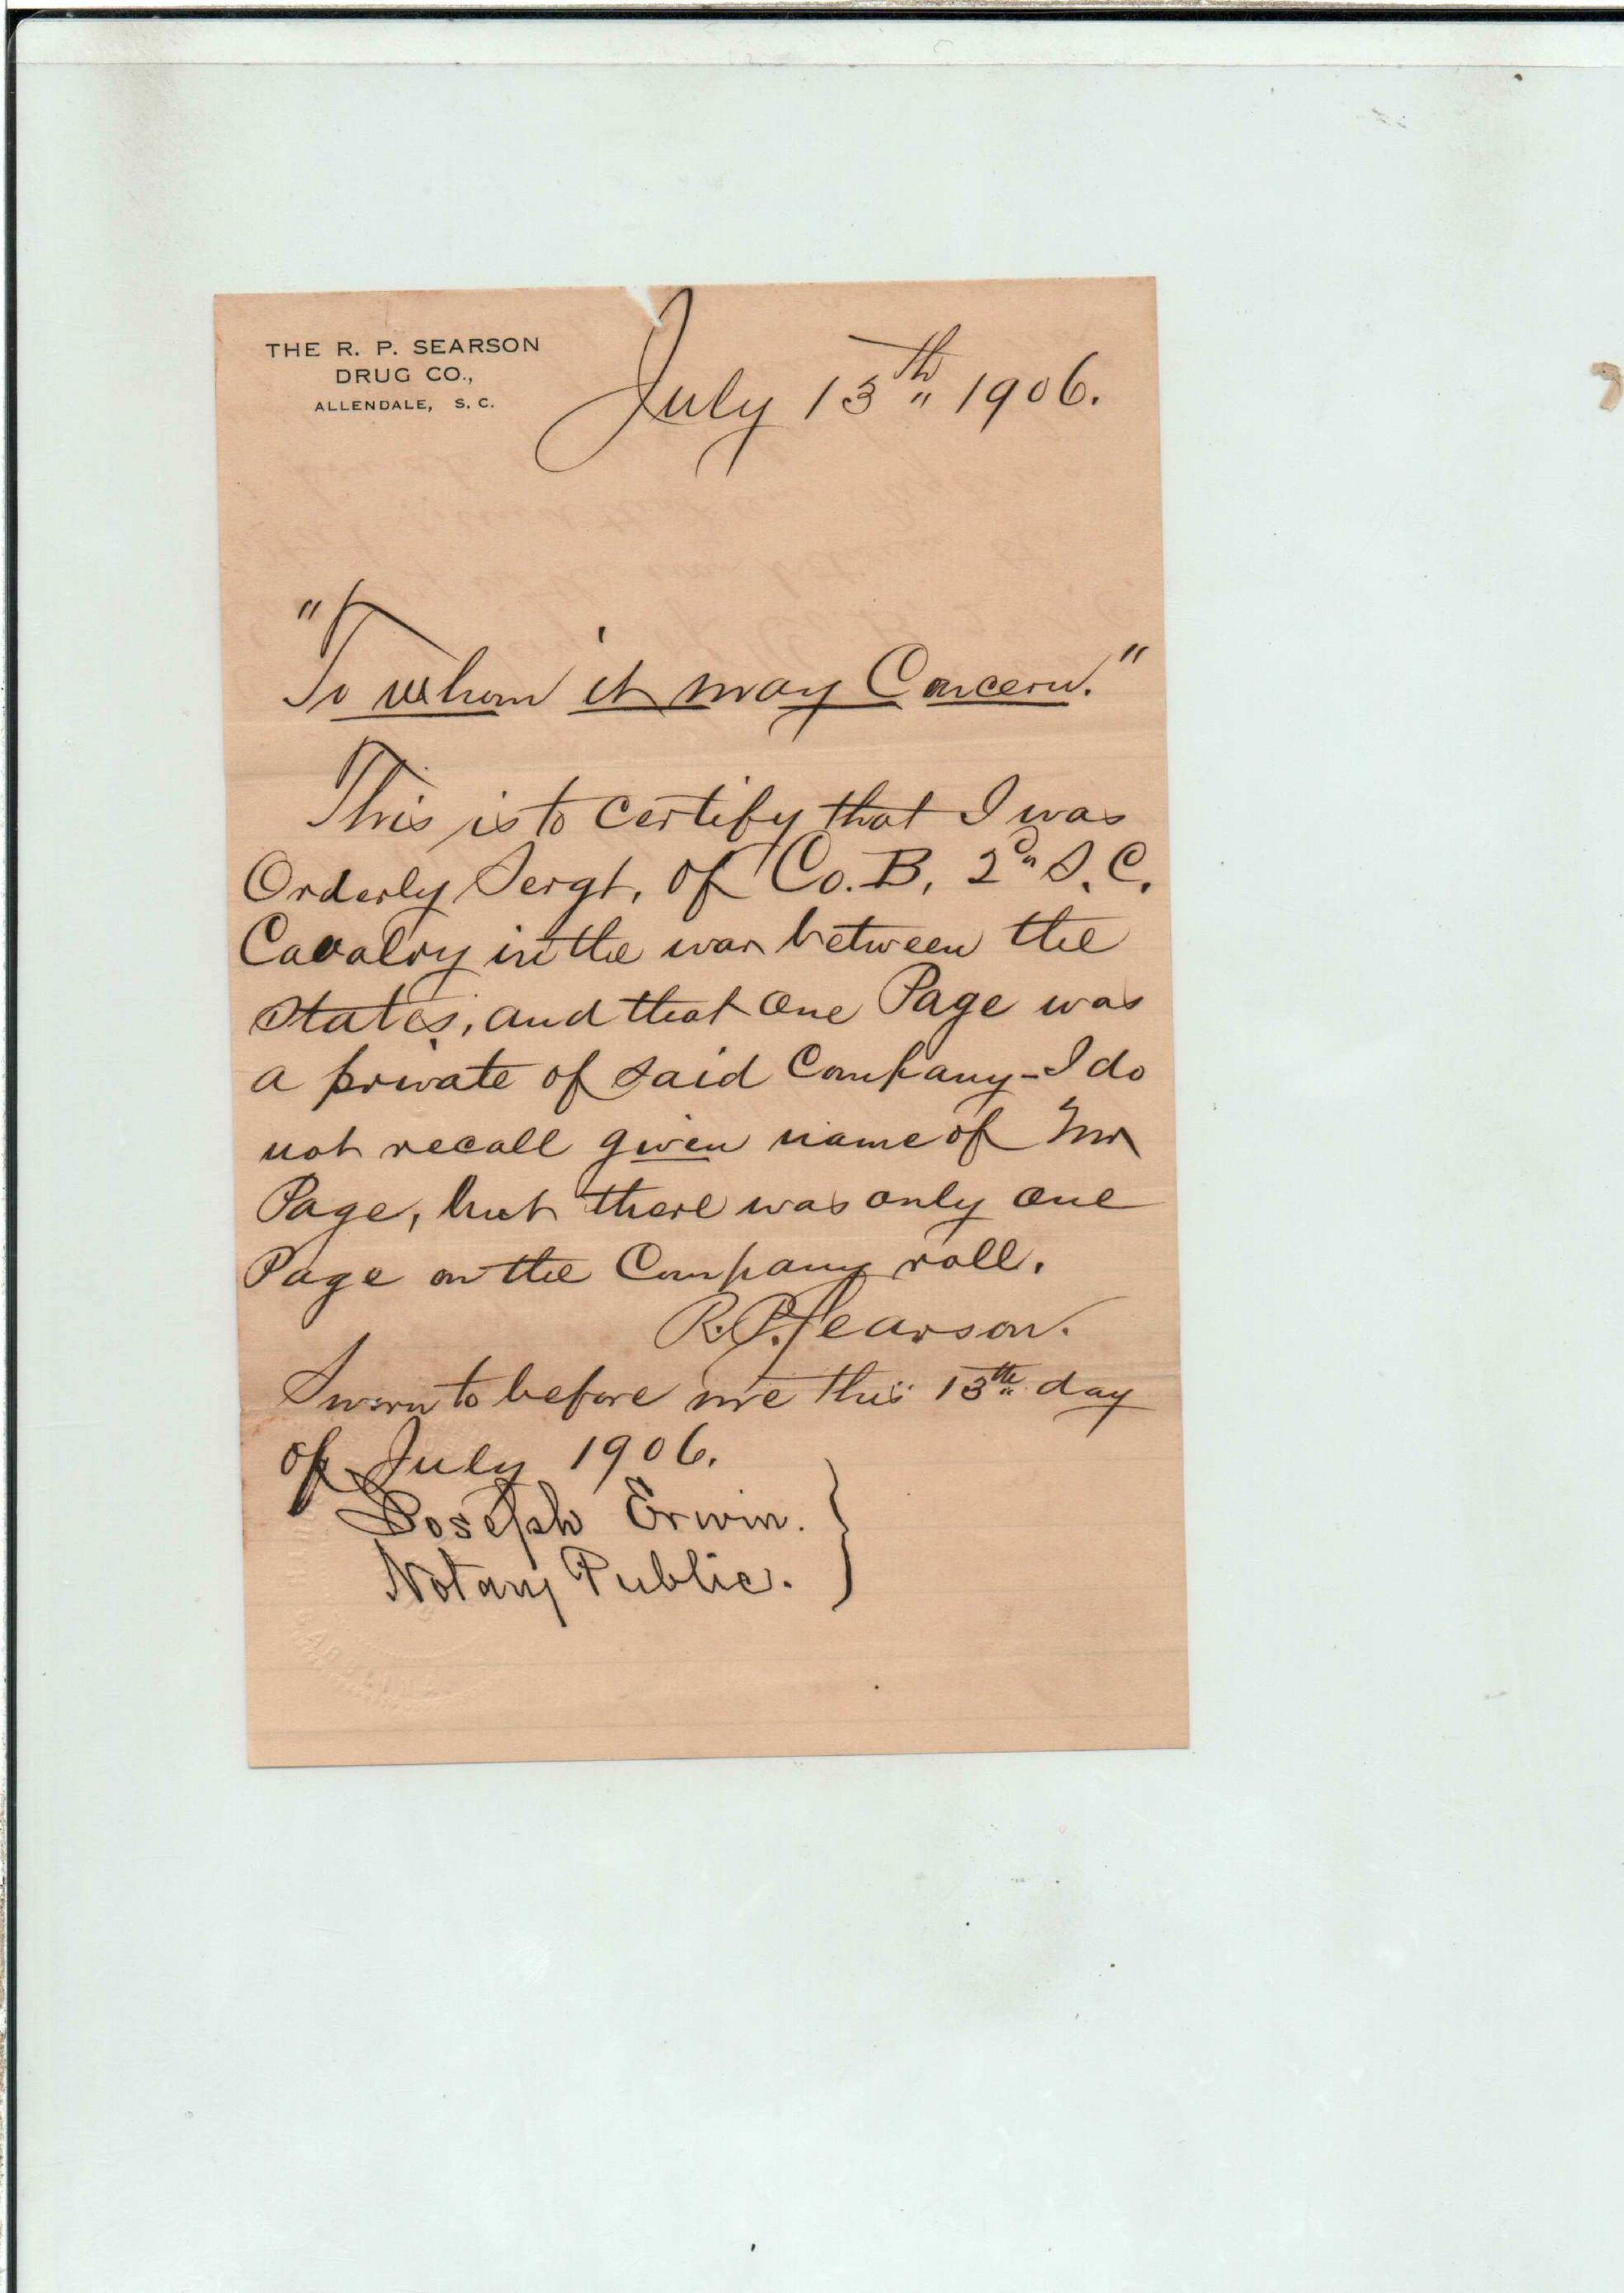 THE R. P. SEARSON
DRUG CO.,
ALLENDALE, S. C.
July 13th " 1906.
"To whom it may Concern."
This is to certify that I was
Orderly Sergt, of Co. B, 2d " S. C.
Cavalry in the war between the
States, and that one Page was
a private of said Company - I do
not recall given name of Mr
Page, but there was only one
Page on the Company roll.
R. P. Searson.
Sworn to before me this 13th day
of July 1906.
Joseph Erwin.
Notary Public.